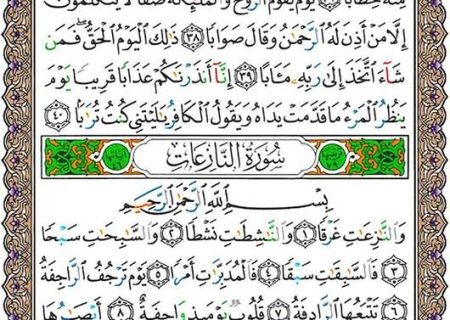 مِنْهُ خِطَابًا ٣٧ يَوْمَ يَقُومُ ٱلرُّوحُ وَٱلْمَلَٰٓئِكَةُ صَفًّا لَّا يَتَكَلَّمُونَ
إِلَّا مَنْ أَذِنَ لَهُ ٱلرَّحْمَٰنُ وَقَالَ صَوَابًا ٣٨ ذَٰلِكَ ٱلْيَوْمُ ٱلْحَقُّ فَمَن
شَآءَ ٱتَّخَذَ إِلَىٰ رَبِّهِۦ مَـَٔابًا ٣٩ إِنَّآ أَنذَرْنَٰكُمْ عَذَابًا قَرِيبًا يَوْمَ
يَنظُرُ ٱلْمَرْءُ مَا قَدَّمَتْ يَدَاهُ وَيَقُولُ ٱلْكَافِرُ يَٰلَيْتَنِى كُنتُ تُرَٰبًۢا ٤٠
سُورَةُ النَّازِعَاتِ
بِسْمِ ٱللَّهِ ٱلرَّحْمَٰنِ ٱلرَّحِيمِ
وَٱلنَّٰزِعَٰتِ غَرْقًا ١ وَٱلنَّٰشِطَٰتِ نَشْطًا ٢ وَٱلسَّٰبِحَٰتِ سَبْحًا
٣ فَٱلسَّٰبِقَٰتِ سَبْقًا ٤ فَٱلْمُدَبِّرَٰتِ أَمْرًا ٥ يَوْمَ تَرْجُفُ ٱلرَّاجِفَةُ
٦ تَتْبَعُهَا ٱلرَّادِفَةُ ٧ قُلُوبٌ يَوْمَئِذٍ وَاجِفَةٌ ٨ أَبْصَٰرُهَا